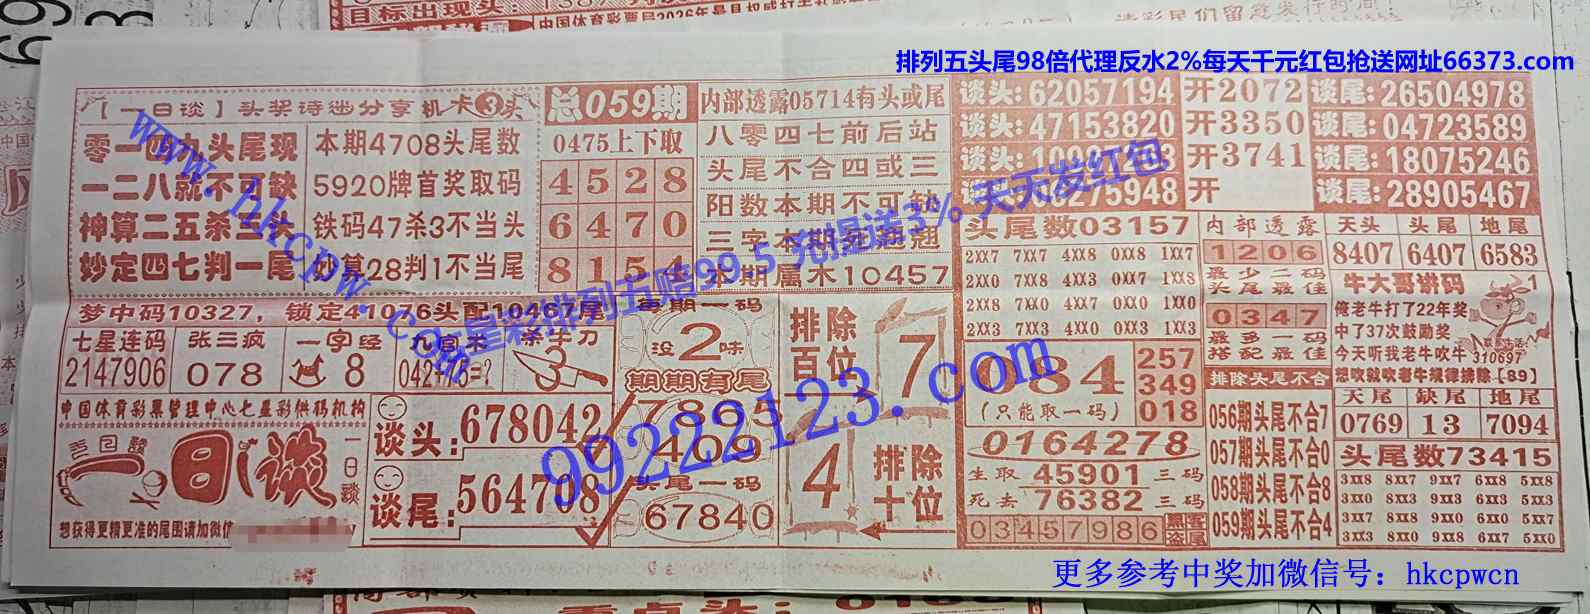 排列五头尾98倍代理反水2%每天千元红包抢送网址66373.com
目标出现头:
【一日谈】头奖诗谜分享机卡③头
零一四九头尾现
一二八就不可缺
神算二五杀三头
妙定四七判一尾
本期4708头尾数
5920牌首奖取码
铁码47杀3不当头
妙算28判1不当尾
总059期
0475上下取
4528
6470
8154
内部透露05714有头或尾
八零四七前后站
头尾不合四或三
阳数本期不可缺
三字本期
本期属木10457
谈头:62057194 开2072 谈尾:26504978
谈头:47153820 开3350 谈尾:04723589
谈头: 开3741 谈尾:18075246
开 谈尾:28905467
梦中码10327,锁定41076头配10467尾
七星连码
2147906
张三疯
078
一字经
8
九宫禾
杀手刀
3
每期一码
没2味
期期有尾
7895
409
头尾一码
67840
排除百位
7
4
排除十位
中国体育彩票管理中心七星彩供码机构
一日谈
一日谈
想获得更精更准的尾围请加微信
谈头:678042
谈尾:564708
头尾数03157
2XX7 7XX7 4XX8 0XX8 1XX7
2XX0 7XX8 4XX7 0XX7 1XX8
2XX8 7XX0 4XX7 0XX0 1XX0
2XX3 7XX3 4XX0 0XX3 1XX3
084
(只能取一码)
257
349
018
0164278
生取45901三码
死去76382三码
03457986
黑客盗尾
内部透露
1206
最少二码
头尾最佳
0347
最多一码
搭配最佳
排除头尾不合
056期头尾不合7
057期头尾不合0
058期头尾不合8
059期头尾不合4
天头 头尾 地尾
8407 6407 6583
牛大哥讲码
俺老牛打了22年奖
中了37次鼓励奖
今天听我老牛吹牛
想吹就吹老牛规律排除【89】
联系生活:
310697
天尾 缺尾 地尾
0769 13 7094
头尾数73415
3XX8 8XX7 9XX7 6XX8 5XX8
3XX0 8XX3 9XX3 6XX3 5XX3
3XX7 8XX8 9XX0 6XX0 5XX7
3XX3 8XX0 9XX8 6XX7 5XX0
www.hkcpw.com
七星彩排列五赔99.5 充提送3% 天天发红包
99222123.com
更多参考中奖加微信号：hkcpwcn